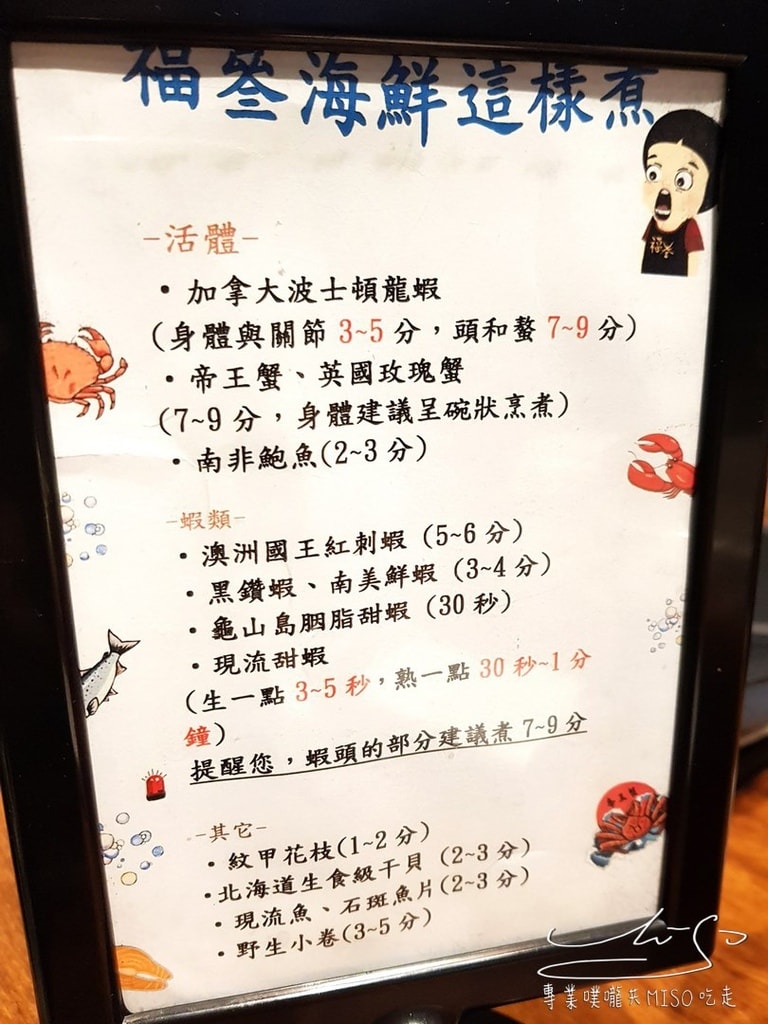 福叄海鮮這樣煮
福叄
-活體-
•加拿大波士頓龍蝦
(身體與關節 3~5 分，頭和螯 7~9 分)
•帝王蟹、英國玫瑰蟹
(7~9 分，身體建議呈碗狀烹煮)
•南非鮑魚(2~3 分)
-蝦類-
•澳洲國王紅刺蝦 (5~6 分)
•黑鑽蝦、南美鮮蝦 (3~4 分)
•龜山島胭脂甜蝦 (30 秒)
•現流甜蝦
(生一點 3~5 秒，熟一點 30 秒~1 分
鐘)
提醒您，蝦頭的部分建議煮 7~9 分
帝王蟹
-其它-
•紋甲花枝(1~2 分)
•北海道生食級干貝 (2~3 分)
•現流魚、石斑魚片(2~3 分)
•野生小卷(3~5 分)
專業噗嚨共MISO吃走